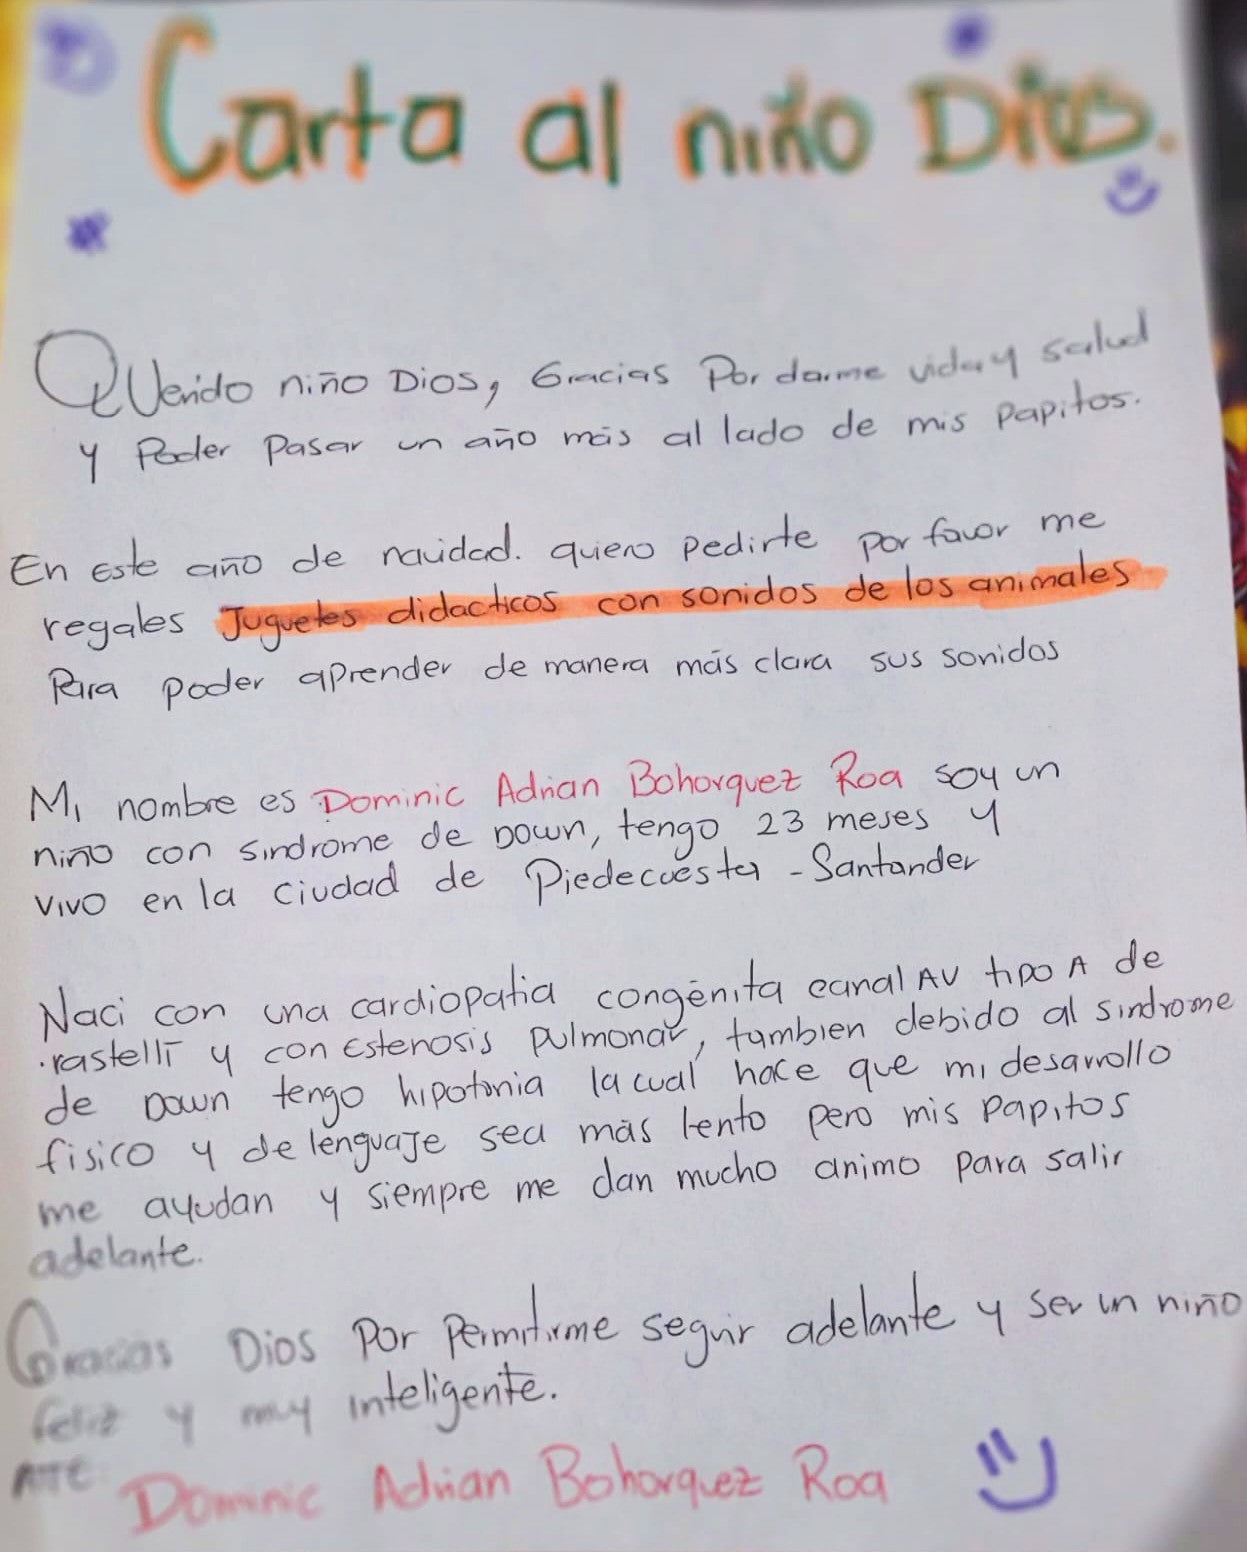 Carta al niño Dios.
Querido niño Dios, Gracias Por darme vida y salud
y Poder Pasar un año más al lado de mis papitos.
En este año de navidad. quiero pedirte por favor me
regales Juguetes didacticos con sonidos de los animales
Para poder aprender de manera más clara sus sonidos
Mi nombre es Dominic Adrian Bohorquez Roa soy un
niño con sindrome de Down, tengo 23 meses y
vivo en la ciudad de Piedecuesta - Santander
Naci con una cardiopatia congénita canal AV tipo A de
rastelli y con Estenosis pulmonar, tambien debido al sindrome
de Down tengo hipotonia la cual hace que mi desarrollo
fisico y de lenguaje sea más lento pero mis papitos
me ayudan y siempre me dan mucho animo para salir
adelante.
Gracias Dios por permitirme seguir adelante y ser un niño
feliz y muy inteligente.
ATTE: Dominic Adrian Bohorquez Roa